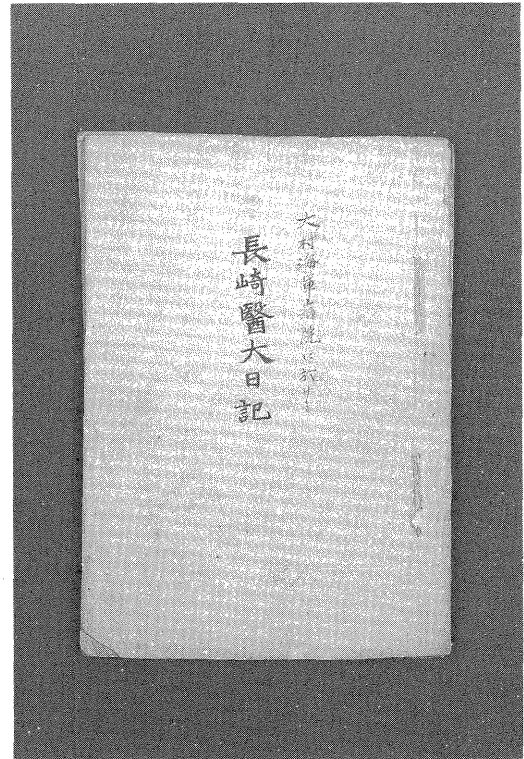 大村海軍病院ニ於ケル
長崎醫大日記